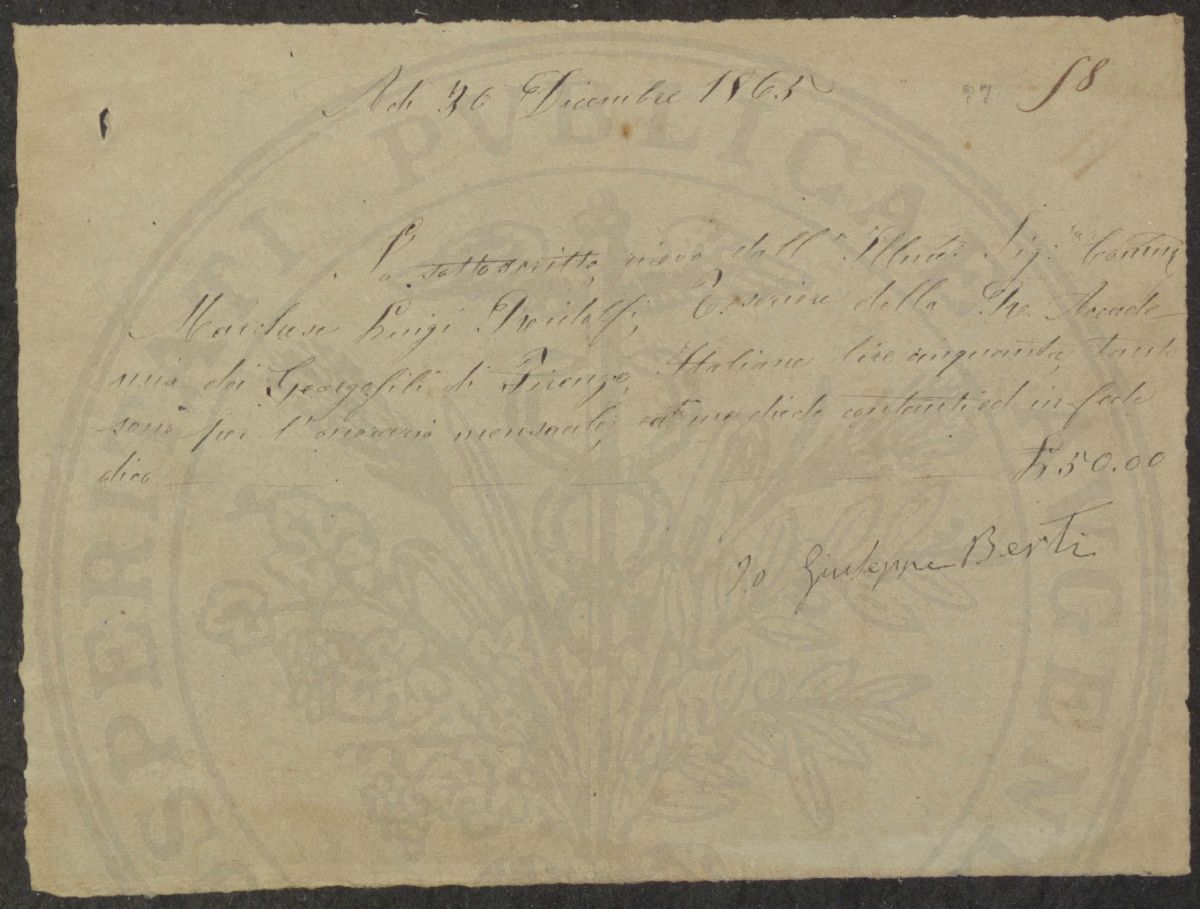 Adi 30 Dicembre 1865
58
Io sottoscritto ricevo dall' Illmo: Sig:
Marchese Luigi Ridolfi, Tesoriere della R. Accade
mia dei Georgofili di Firenze, Italiane lire cinquanta, tante
sono per l'onorario mensuale; e me diede contanti ed in fede
dico £50.00
Io Giuseppe Berti
PVBLICAE